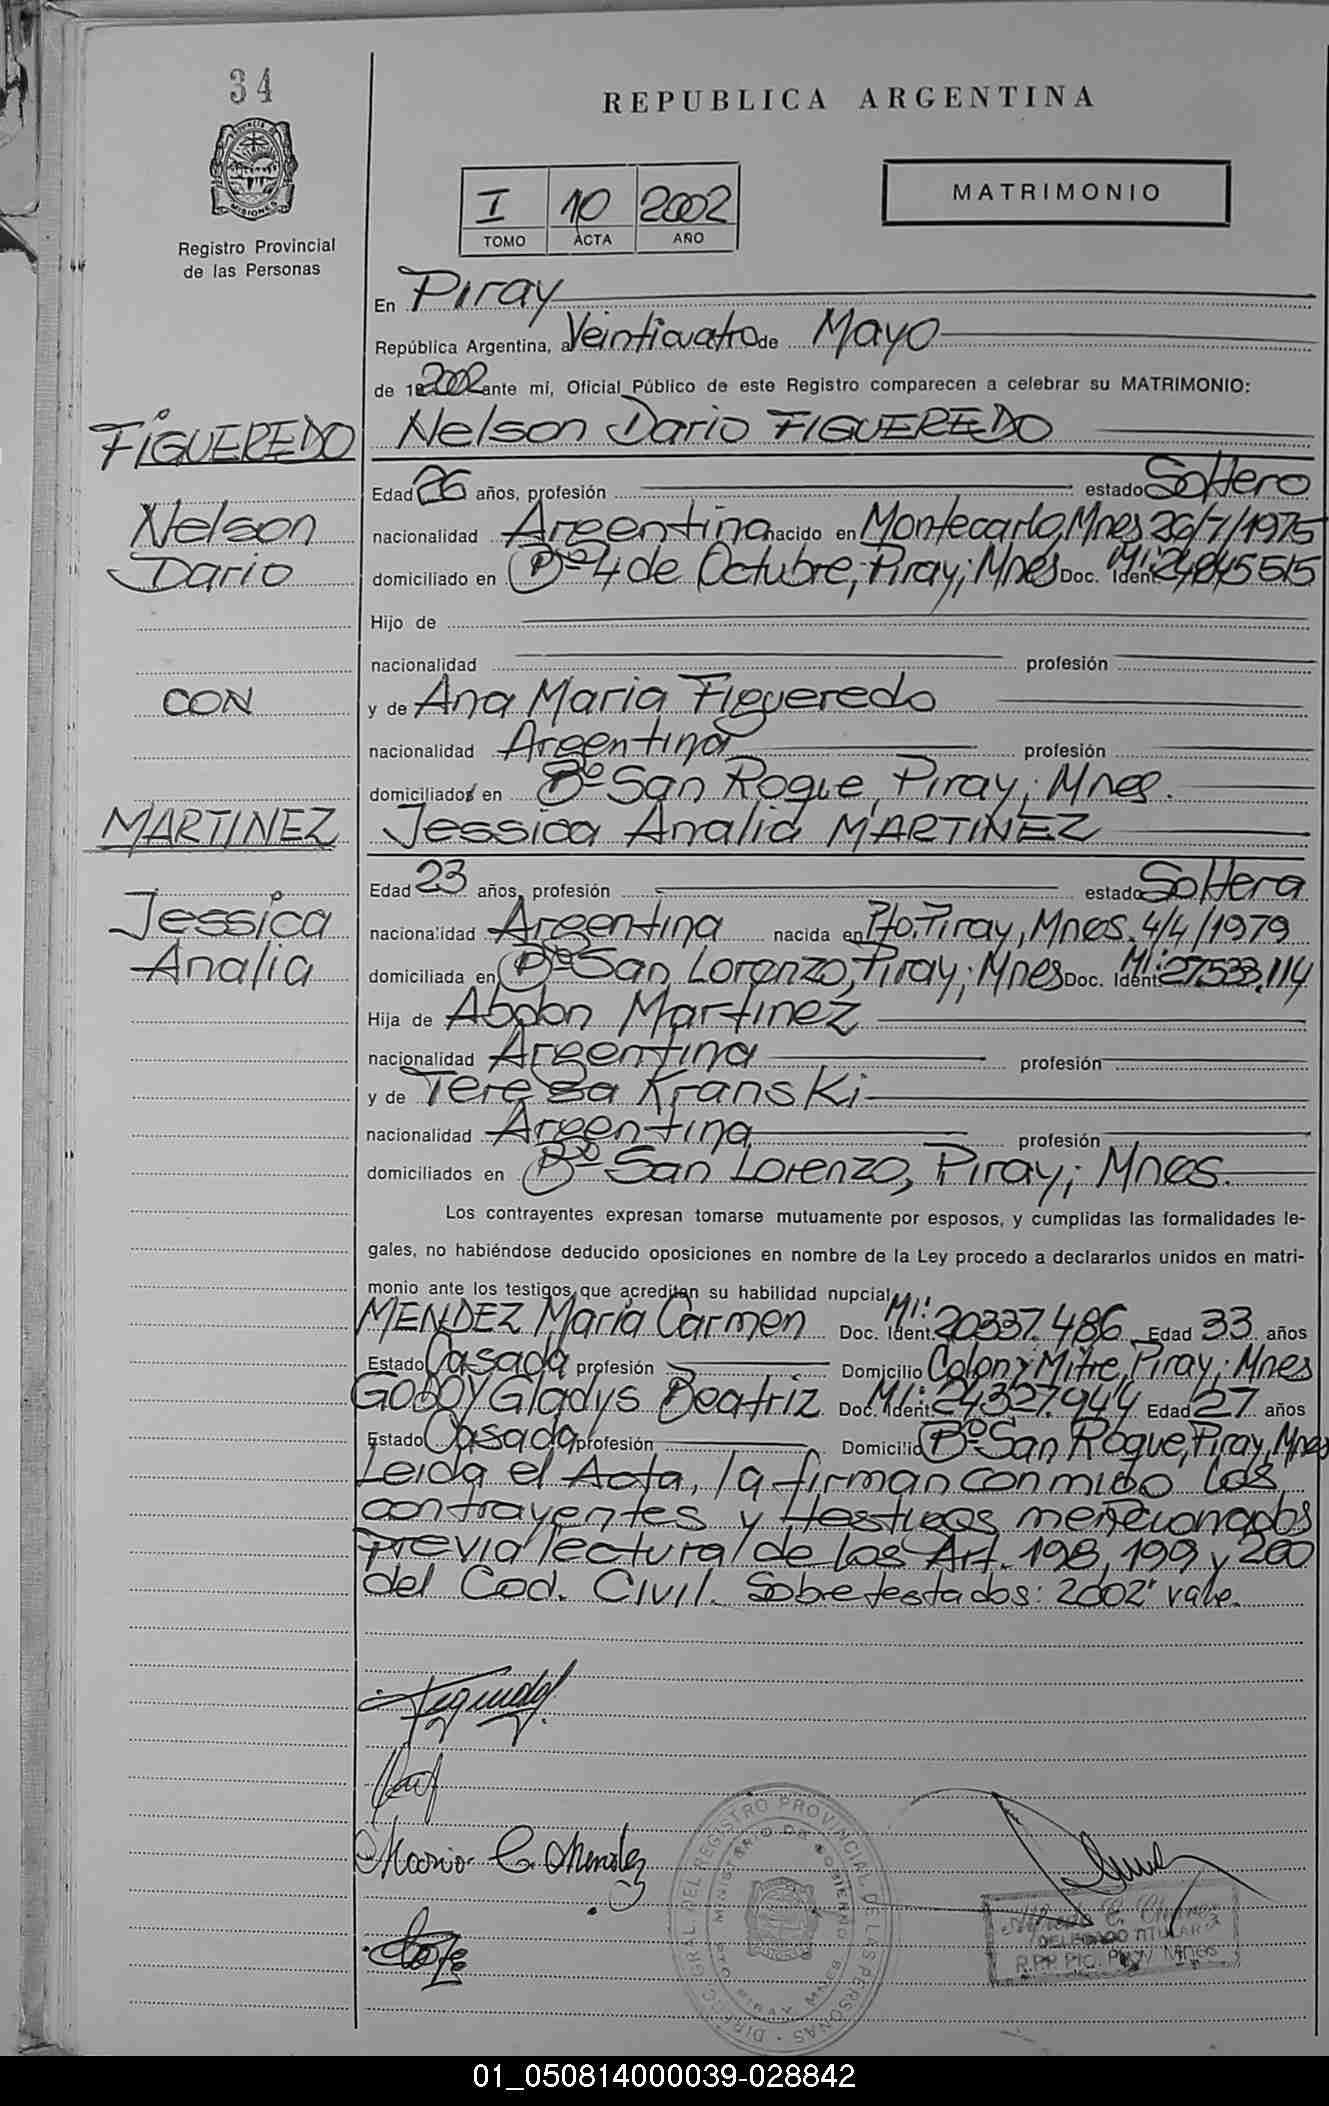 34
REPUBLICA ARGENTINA
PROVINCIA DE
MISIONES
Registro Provincial
de las Personas
I 10 2002
TOMO ACTA AÑO
MATRIMONIO
En Piray
República Argentina, a Veinticuatro de Mayo
de 2002 ante mí, Oficial Público de este Registro comparecen a celebrar su MATRIMONIO:
FIGUEREDO Nelson Dario FIGUEREDO
Edad 26 años, profesión estado Soltero
Nelson nacionalidad Argentina nacido en Montecarlo, Mnes 26/7/1975
Dario domiciliado en Bº 4 de Octubre, Piray; Mnes Doc. Ident. MI: 24845515
Hijo de
nacionalidad profesión
CON y de Ana Maria Figueredo
nacionalidad Argentina profesión
domiciliados en Bº San Roque, Piray; Mnes.
MARTINEZ Jessica Analia MARTINEZ
Edad 23 años, profesión estado Soltera
Jessica nacionalidad Argentina nacida en Pto. Piray, Mnes. 4/4/1979
Analia domiciliada en Bº San Lorenzo, Piray; Mnes Doc. Ident. MI: 27.533.114
Hija de Abdon Martinez
nacionalidad Argentina profesión
y de Teresa Kranski
nacionalidad Argentina profesión
domiciliados en Bº San Lorenzo, Piray; Mnes.
Los contrayentes expresan tomarse mutuamente por esposos, y cumplidas las formalidades le-
gales, no habiéndose deducido oposiciones en nombre de la Ley procedo a declararlos unidos en matri-
monio ante los testigos que acreditan su habilidad nupcial
MENDEZ Maria Carmen Doc. Ident. MI: 20337.486 Edad 33 años
Estado Casada profesión Domicilio Colonia Mitre, Piray; Mnes
GODOY Gladys Beatriz Doc. Ident. MI: 24327.944 Edad 27 años
Estado Casada profesión Domicilio Bº San Roque, Piray, Mnes
Leida el Acta, la firman conmigo los
contrayentes y testigos mencionados
previa lectura de los Art. 198, 199 y 200
del Cod. Civil. Sobretestados: 2002 vale.
Maria C. Mendez
DIRECC. GRAL. DEL REGISTRO PROVINCIAL DE LAS PERSONAS
MINISTERIO DE GOBIERNO
PIRAY MNES
DELEGADO TITULAR
01_050814000039-028842